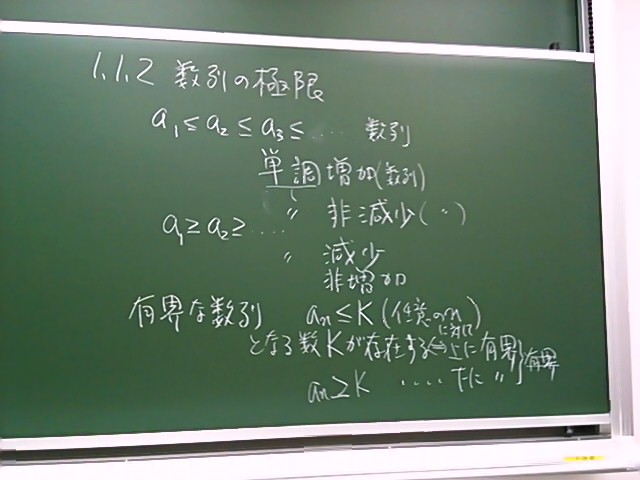 1.1.2 数列の極限
a₁≤a₂≤a₃≤‥‥ 数列
単調増加(数列)
〃 非減少(〃)
a₁≥a₂≥‥‥
〃 減少
非増加
有界な数列 aₙ≤K(任意のnに対して)
となる数Kが存在する⇔上に有界
aₙ≥K ‥‥下に〃 } 有界